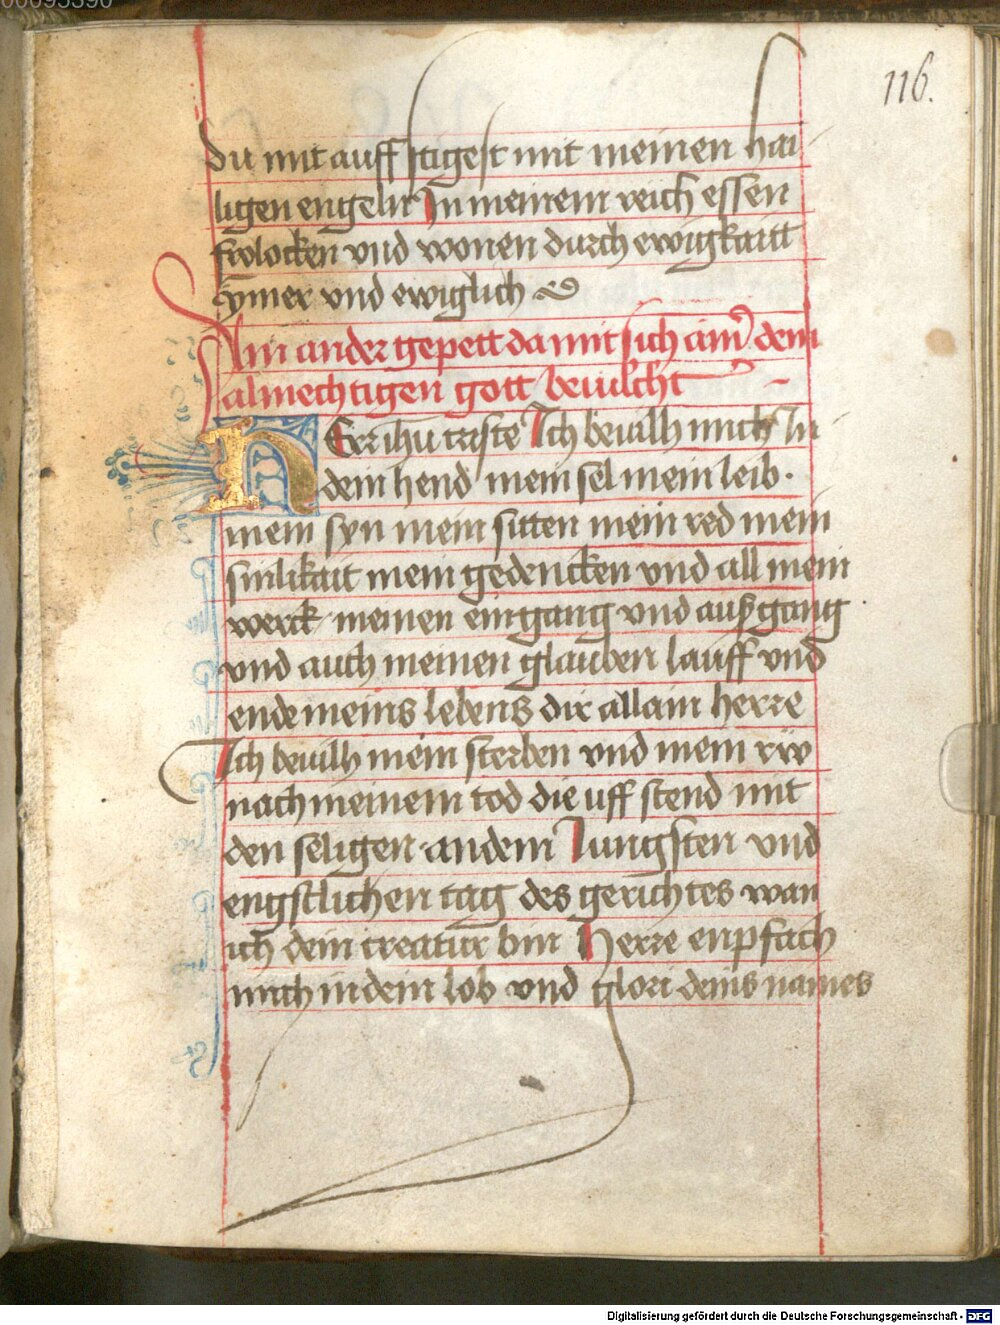 00095390
116.
du mit auff stigest mit meinen hai
ligen engeln In meinem reich essen
frolocken vnd wonen durch ewigkaitt
ÿmer vnd ewiglich
Ain ander gepett da mit sich ainr dem
almechtigen gott beuilcht
HErr ihu criste Ich beuilh mich In
dein hend mein sel mein leib ·
mein syn mein sitten mein red mein
sinlikait mein gedencken vnd all mein
werck meinen eingang vnd außgang
vnd auch meinen glauben lauff vnd
ende meins lebens dir allain herre
Ich beuilh mein sterben vnd mein rw
nach meinem tod die uff stend mit
den seligen an dem Iungsten vnd
engstlichen tag des gerichtes wan
ich dein creatur bin Herre enpfach
mich in dein lob vnd glori deins names
Digitalisierung gefördert durch die Deutsche Forschungsgemeinschaft - DFG